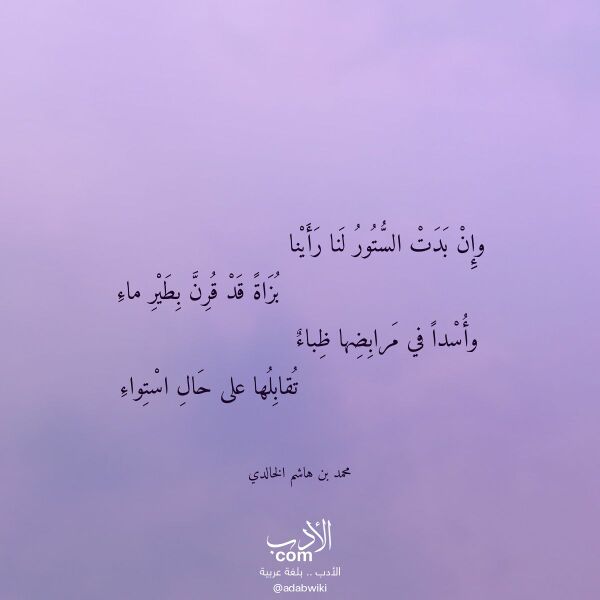 وإِنْ بَدَتْ السُّتُورُ لَنا رَأَيْنا
بُزَاةً قَدْ قُرِنَّ بِطَيْرِ ماءِ
وأُسْداً في مَرابِضِها ظِباءٌ
تُقابِلُها على حَالِ اسْتِواءِ
محمد بن هاشم الخالدي
الأدب
com
الأدب .. بلغة عربية
@adabwiki